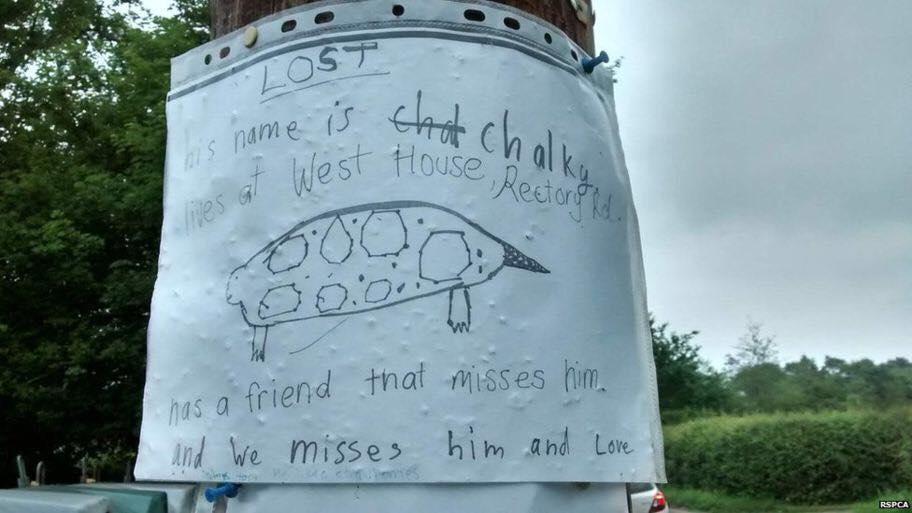 LOST
his name is chat chalky
lives at West House, Rectory Rd.
has a friend that misses him.
and we misses him and Love
RSPCA